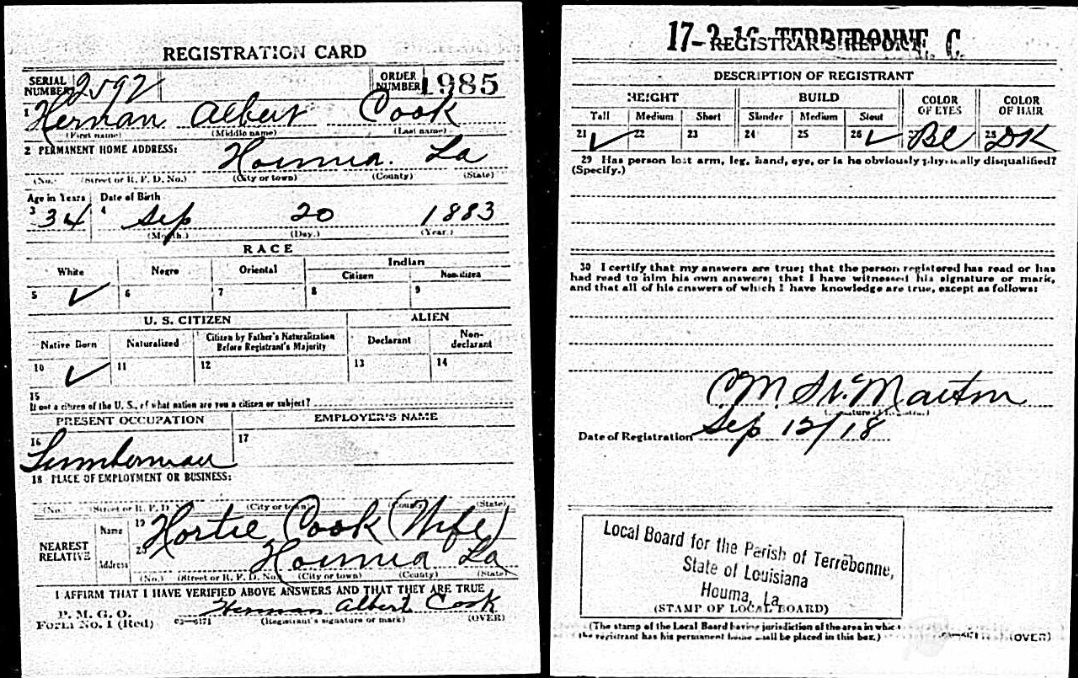 REGISTRATION CARD
SERIAL NUMBER 2592 ORDER NUMBER 1985
1 Herman Albert Cook
(First name) (Middle name) (Last name)
2 PERMANENT HOME ADDRESS: Houma. La
(No.) (Street or R. F. D. No.) (City or town) (County) (State)
Age in Years Date of Birth
3 34 4 Sep 20 1883
(Month.) (Day.) (Year.)
RACE
White Negro Oriental Indian
Citizen Noncitizen
5 ✓ 6 7 8 9
U. S. CITIZEN ALIEN
Native Born Naturalized Citizen by Father's Naturalization Before Registrant's Majority Declarant Non-declarant
10 ✓ 11 12 13 14
15
If not a citizen of the U. S., of what nation are you a citizen or subject?
PRESENT OCCUPATION EMPLOYER'S NAME
16 Lumberman 17
18 PLACE OF EMPLOYMENT OR BUSINESS:
(No.) (Street or R. F. D. No.) (City or town) (County) (State)
NEAREST RELATIVE Name 19 Hortie Cook (Wife)
Address 20 Houma La
(No.) (Street or R. F. D. No.) (City or town) (County) (State)
I AFFIRM THAT I HAVE VERIFIED ABOVE ANSWERS AND THAT THEY ARE TRUE
P. M. G. O.
Form No. 1 (Red) 03—6171 Herman Albert Cook
(Registrant's signature or mark) (OVER)
17-2-16 TERREBONNE, C
REGISTRAR'S REPORT
DESCRIPTION OF REGISTRANT
HEIGHT BUILD COLOR OF EYES COLOR OF HAIR
Tall Medium Short Slender Medium Stout
21 ✓ 22 23 24 25 26 ✓ Bl 28 DK
29 Has person lost arm, leg, hand, eye, or is he obviously physically disqualified?
(Specify.)
30 I certify that my answers are true; that the person registered has read or has
had read to him his own answers; that I have witnessed his signature or mark,
and that all of his answers of which I have knowledge are true, except as follows:
C M St. Martin
Date of Registration Sep 12/18
Local Board for the Parish of Terrebonne,
State of Louisiana
Houma, La
(STAMP OF LOCAL BOARD)
(The stamp of the Local Board having jurisdiction of the area in which
the registrant has his permanent home shall be placed in this box.) (OVER)